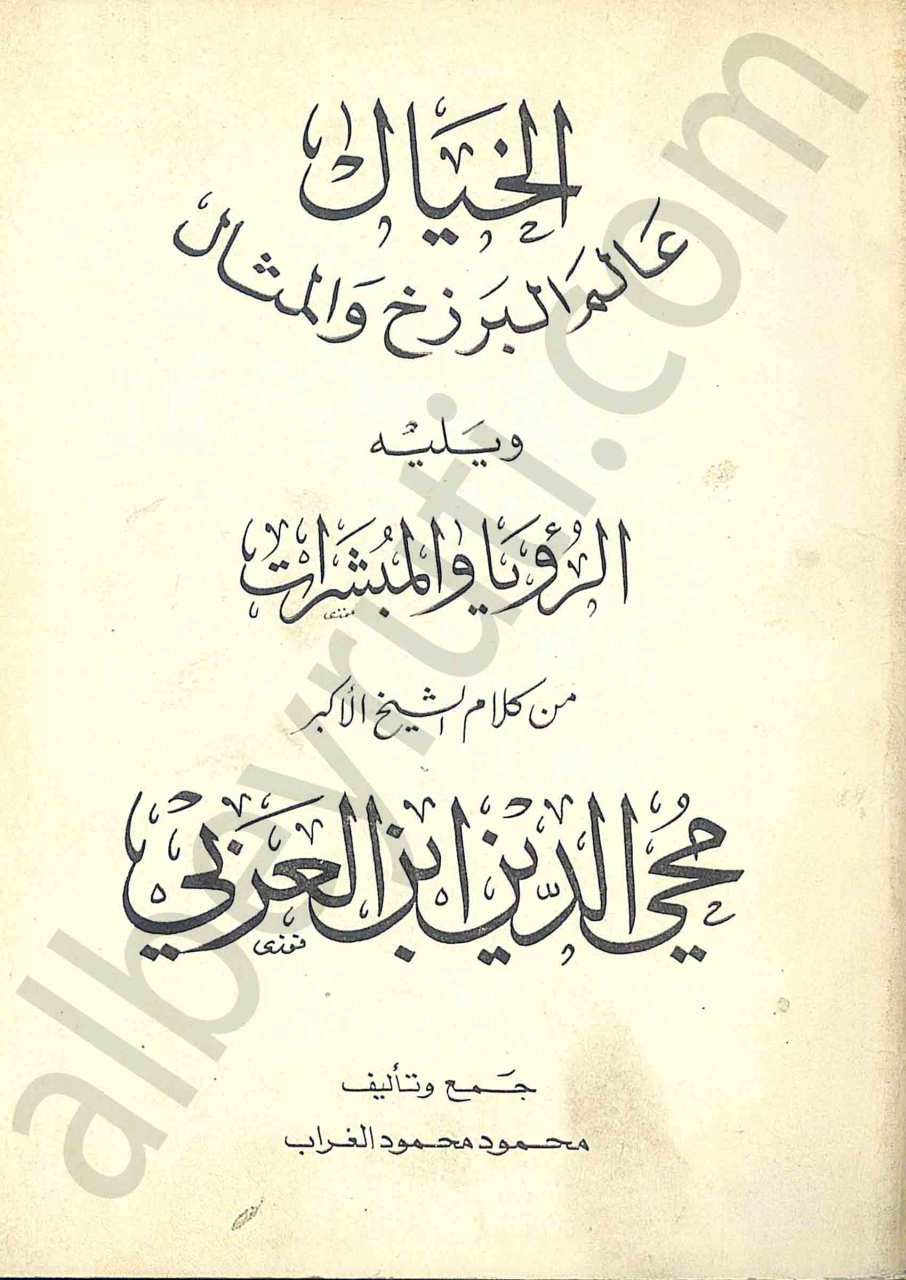 الخيال
عالم البرزخ والمثال
ويليه
الرؤيا والمبشرات
فوزي
من كلام الشيخ الأكبر
محيي الدين ابن العربي
فوزي
جمع وتأليف
محمود محمود الغراب
albeyruti.com